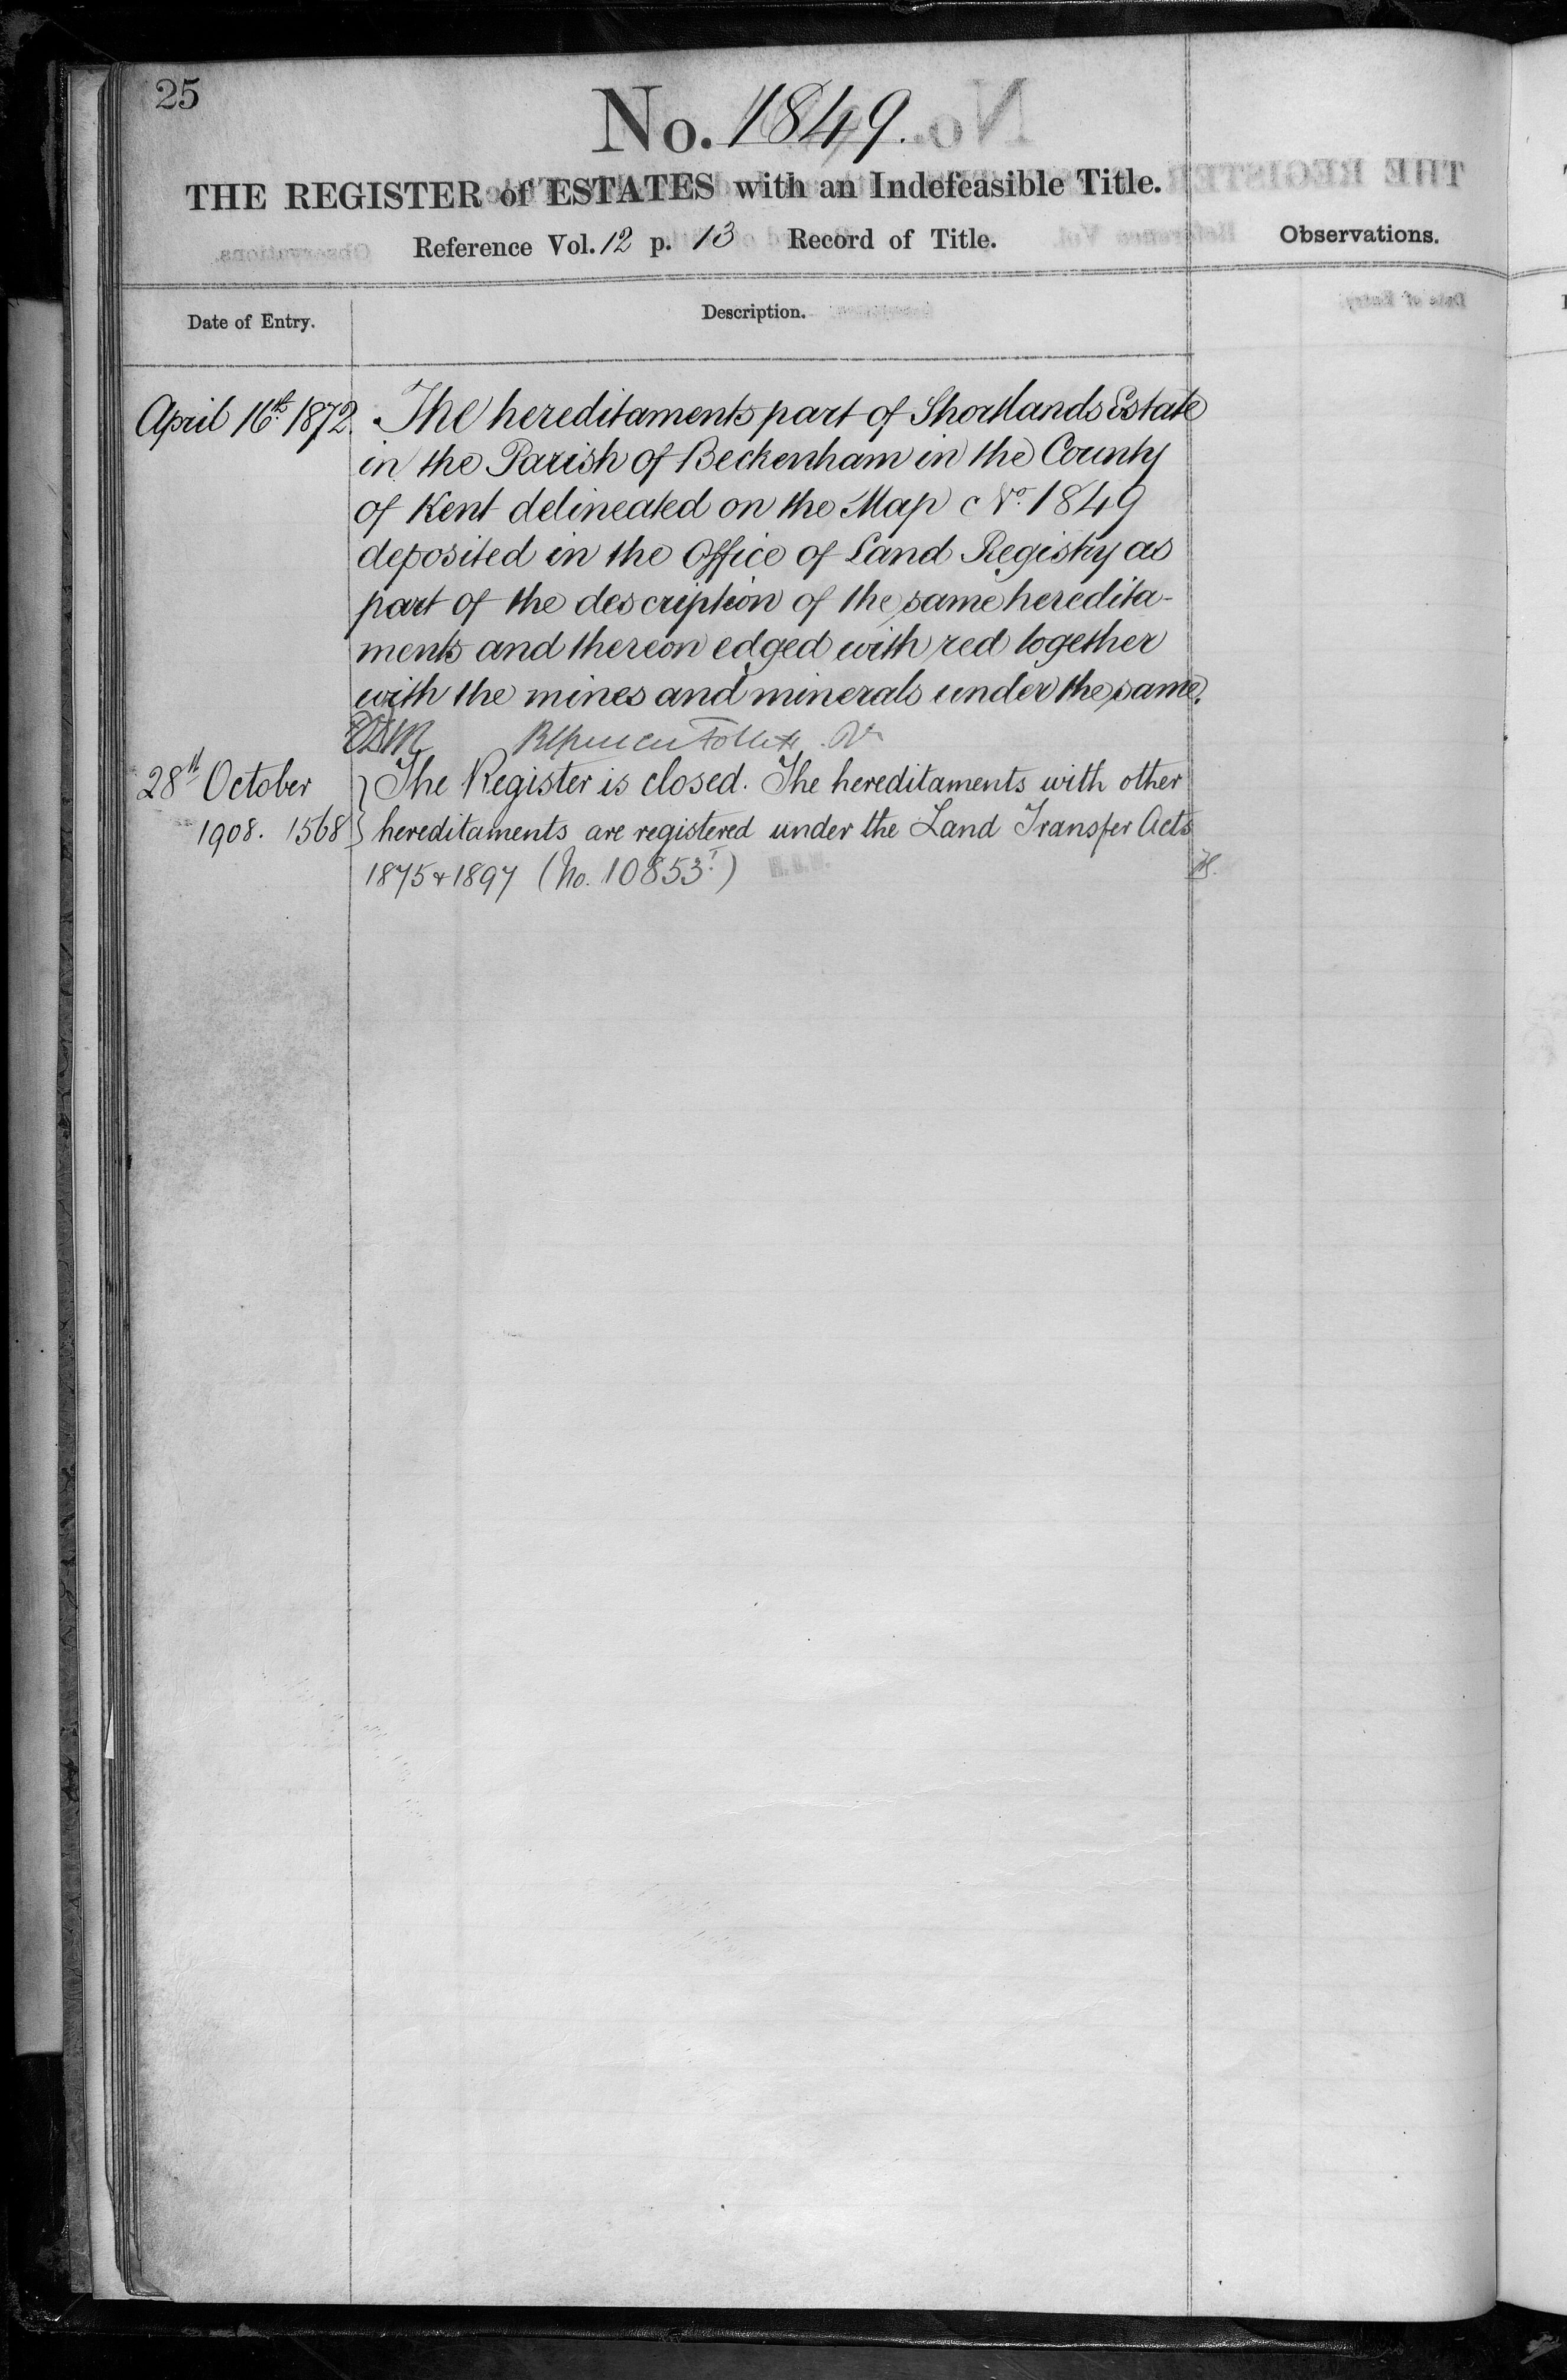 25
No. 1849.
THE REGISTER of ESTATES with an Indefeasible Title.
Reference Vol. 12 p. 13 Record of Title.
Observations.
Date of Entry.
Description.
April 16th 1872. The hereditaments part of Shortlands Estate
in the Parish of Beckenham in the County
of Kent delineated on the Map No. 1849
deposited in the Office of Land Registry as
part of the description of the same heredita-
ments and thereon edged with red together
with the mines and minerals under the same.
28th October } The Register is closed. The hereditaments with other
1908. 1568 } hereditaments are registered under the Land Transfer Acts
1875 & 1897 (No. 10853)